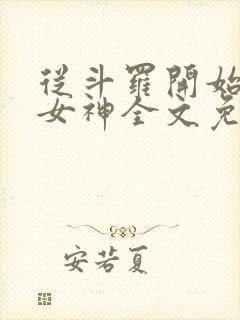 從斗羅開始
女神全文免
安若夏